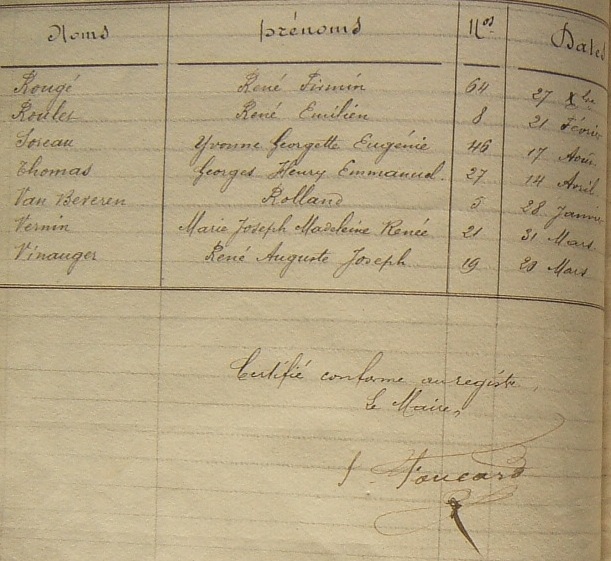 Noms prénoms Nos Dates
Rougé René Firmin 64 27 Xbre
Roulet René Emilien 8 21 Févrie
Soreau Yvonne Georgette Eugénie 46 17 Août
Thomas Georges Henry Emmanuel. 27 14 Avril
Van Beveren Rolland 5 28 Janvie
Vernin Marie Joseph Madeleine Renée 21 31 Mars
Vinauger René Auguste Joseph 19 20 Mars
Certifié conforme au registre,
Le Maire,
Foucard